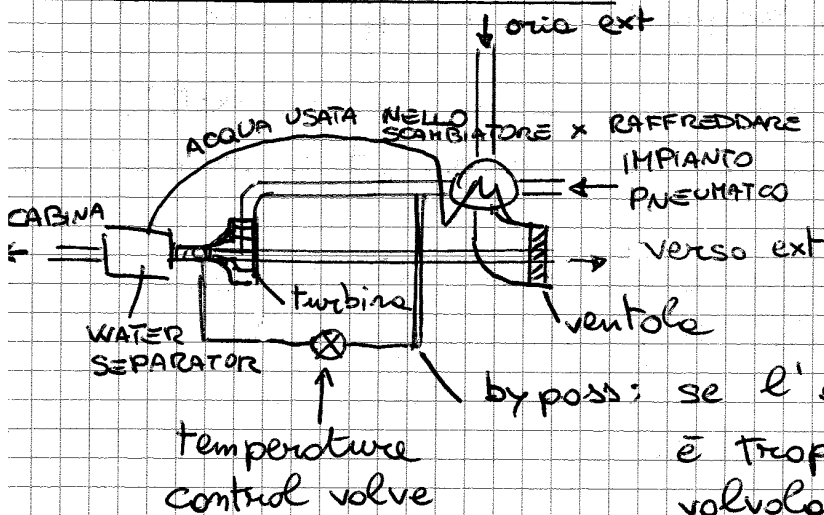 aria ext
ACQUA USATA NELLO
SCAMBIATORE x RAFFREDDARE
IMPIANTO
PNEUMATCO
CABINA
verso ext
turbina
ventola
WATER
SEPARATOR
bypass: se l'
temperature
control valve
è trop
valvola